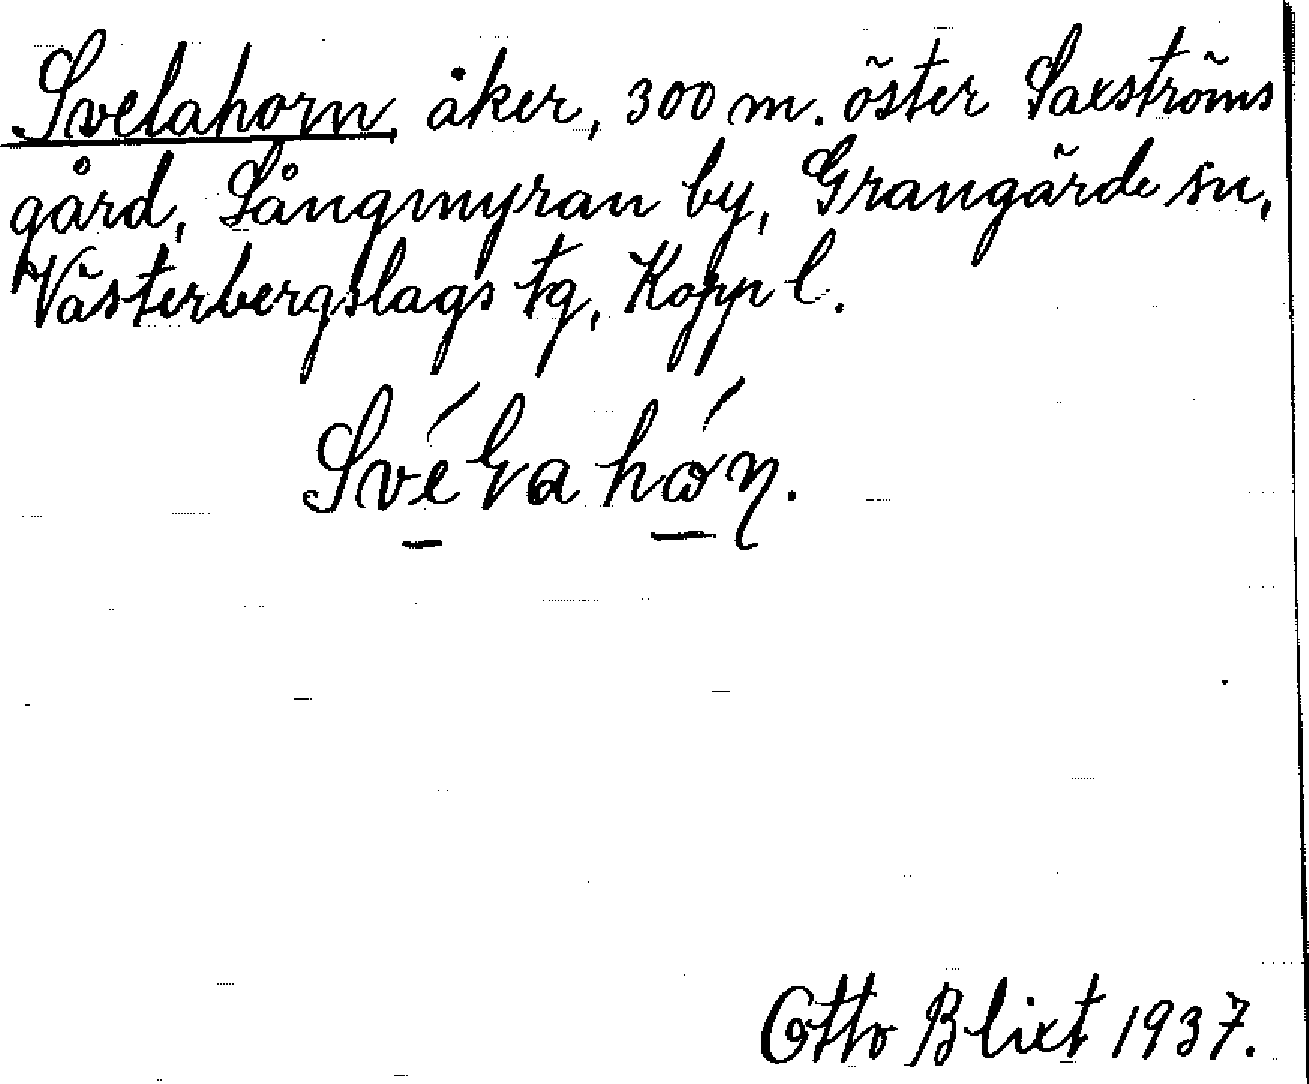 Svelahorn åker, 300 m. öster Saxströms
gård, Sångmyran by, Grangärde sn,
Västerbergslags tg, Kopp l.
Otto Blixt 1937.